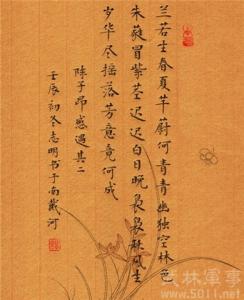 兰若生春夏芊蔚何青青幽独空林色
朱蕤冒紫茎迟迟白日晚袅袅秋风生
岁华尽摇落芳意竟何成
陈子昂感遇其二
壬辰初冬志明书于南戴河
铁林军事
www.5011.net